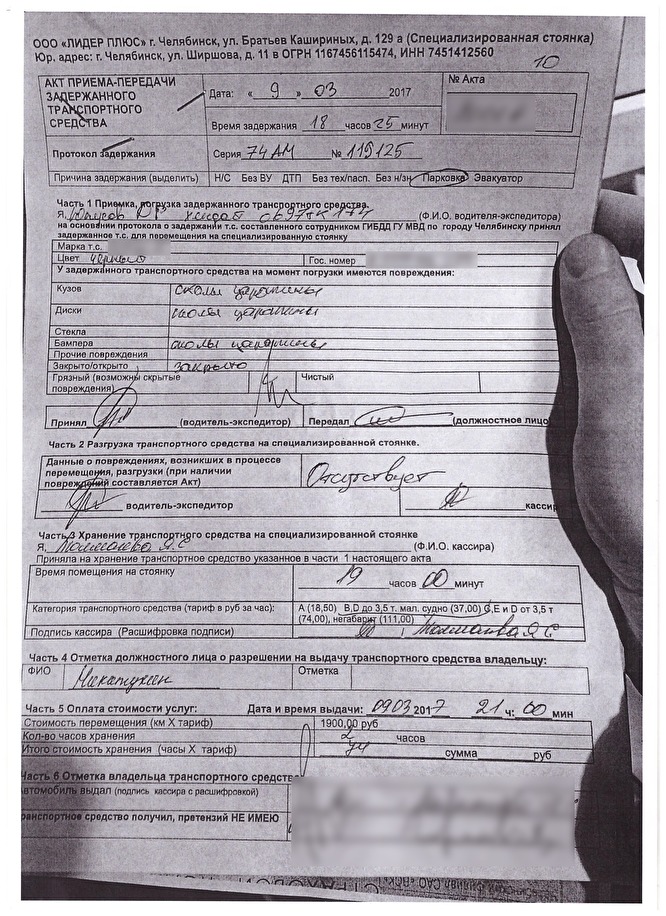 ООО «ЛИДЕР ПЛЮС» г. Челябинск, ул. Братьев Кашириных, д. 129 а (Специализированная стоянка)
Юр. адрес: г. Челябинск, ул. Ширшова, д. 11 в ОГРН 1167456115474, ИНН 7451412560
10
АКТ ПРИЕМА-ПЕРЕДАЧИ ЗАДЕРЖАННОГО ТРАНСПОРТНОГО СРЕДСТВА
Дата: « 9 » 03 2017
№ Акта
Время задержания 18 часов 25 минут
Протокол задержания
Серия 74АМ № 119125
Причина задержания (выделить)
Н/С Без ВУ ДТП Без тех/пасп. Без н/зн. Парковка Эвакуатор
Часть 1 Приемка, погрузка задержанного транспортного средства.
Я, (Ф.И.О. водителя-экспедитора)
на основании протокола о задержании т.с. составленного сотрудником ГИБДД ГУ МВД по городу Челябинску принял
задержанное т.с. для перемещения на специализированную стоянку
Марка т.с.
Цвет черный Гос. номер
У задержанного транспортного средства на момент погрузки имеются повреждения:
Кузов сколы царапины
Диски сколы царапины
Стекла
Бампера сколы царапины
Прочие повреждения
Закрыто/открыто закрыто
Грязный (возможны скрытые повреждения)
Чистый
Принял (водитель-экспедитор) Передал (должностное лицо
Часть 2 Разгрузка транспортного средства на специализированной стоянке.
Данные о повреждениях, возникших в процессе перемещения, разгрузки (при наличии повреждений составляется Акт)
Отсутствует
водитель-экспедитор кассир
Часть 3 Хранение транспортного средства на специализированной стоянке
Я, (Ф.И.О. кассира)
Приняла на хранение транспортное средство указанное в части 1 настоящего акта
Время помещения на стоянку 19 часов 00 минут
Категория транспортного средства (тариф в руб за час):
А (18,50) B,D до 3,5 т. мал. судно (37,00) C,E и D от 3,5 т
(74,00), негабарит (111,00)
Подпись кассира (Расшифровка подписи)
Часть 4 Отметка должностного лица о разрешении на выдачу транспортного средства владельцу:
ФИО Отметка
Часть 5 Оплата стоимости услуг: Дата и время выдачи: 09.03 2017 21 ч: 00 мин
Стоимость перемещения (км Х тариф) 1900,00 руб
Кол-во часов хранения 2 часов
Итого стоимость хранения (часы Х тариф) 74 сумма руб
Часть 6 Отметка владельца транспортного средства
Автомобиль выдал (подпись кассира с расшифровкой)
транспортное средство получил, претензий НЕ ИМЕЮ